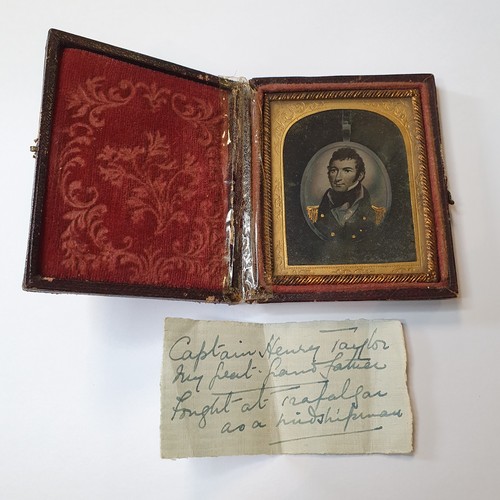 Captain Henry Taylor
My Great-Grand father
Fought at Trafalgar
as a midshipman